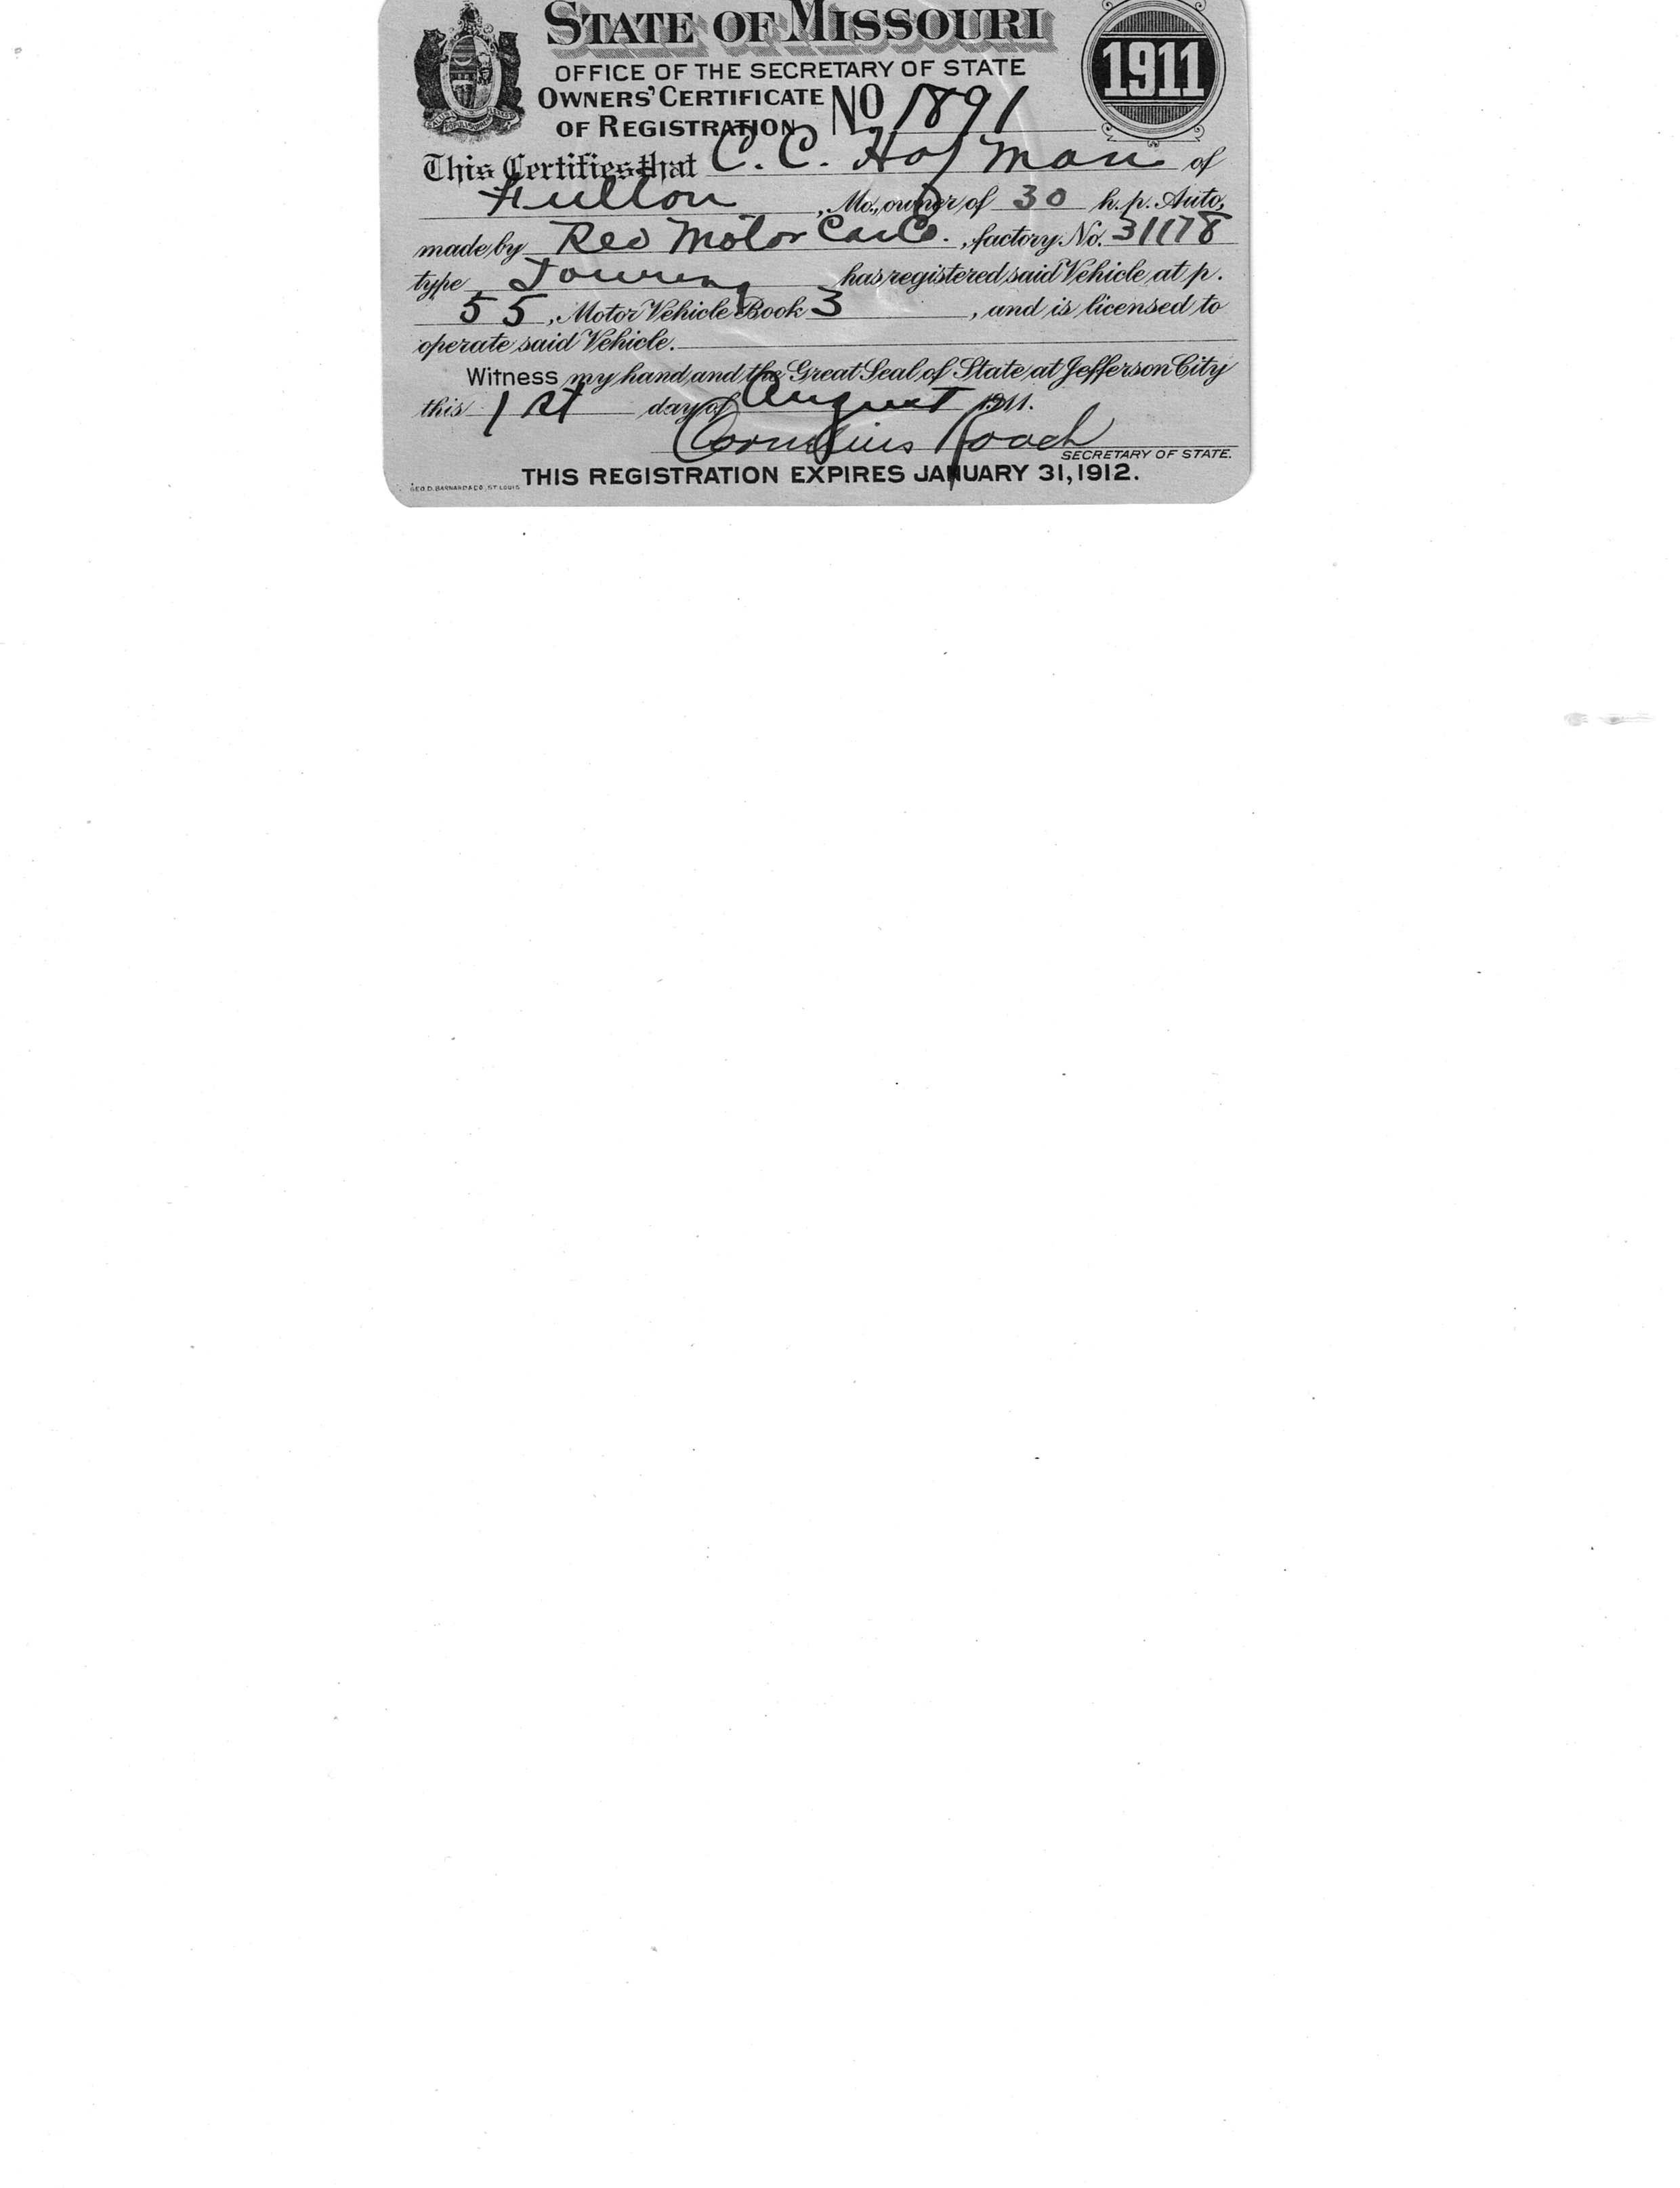 STATE OF MISSOURI
1911
OFFICE OF THE SECRETARY OF STATE
OWNERS' CERTIFICATE OF REGISTRATION NO 1891
This Certifies that C. C. Hofman of
Fulton, Mo., owner of 30 h.p. Auto,
made by Reo Motor Car Co., factory No. 31178
type Touring has registered said Vehicle at p.
55, Motor Vehicle Book 3, and is licensed to
operate said Vehicle.
Witness my hand and the Great Seal of State at Jefferson City
this 1st day of August 1911.
Cornelius Roach
SECRETARY OF STATE.
THIS REGISTRATION EXPIRES JANUARY 31, 1912.
GEO. D. BARNARD & CO., ST. LOUIS